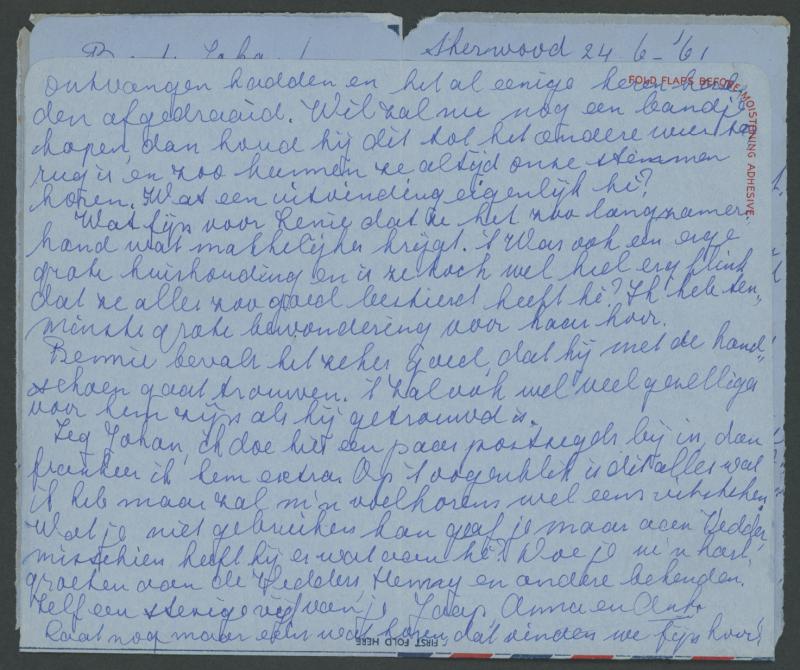 Sherwood 24-6-'61
ontvangen hadden en het al eenige keren had-
FOLD FLAPS BEFORE MOISTENING ADHESIVE
den afgedraaid. Wil zal nu nog een bandje
kopen dan houd hij dit tot het andere weer te-
rug is en zoo kunnen ze altijd onze stemmen
horen. Wat een uitvinding eigenlijk hè?
Wat fijn voor Lenie dat ze het zoo langzamer-
hand wat makkelijker krijgt. 't Was ook een erge
grote huishouding en is ze toch wel heel erg flink
dat ze alles zoo goed bestiert heeft hè? Ik heb ten-
minste grote bewondering voor haar hoor.
Bennie bevalt het zeker goed, dat hij met de hand-
schoen gaat trouwen. 't Zal ook wel veel gezelliger
voor hem zijn als hij getrouwd is.
Zeg Johan, ik doe hier een paar postzegels bij in, dan
frankeer ik hem extra. Op 't oogenblik is dit alles wat
ik heb maar zal m'n voelhorens wel eens uitsteken.
Wat je niet gebruiken kan geef je maar aan Vedder,
misschien heeft hij er wat aan hè? Doe je m'n hart.
groeten aan de Vedders Henny en andere bekenden.
Zelf een stevige vijf van je Jaap Anna en
Laat nog maar eens wat horen, dat vinden we fijn hoor!
FIRST FOLD HERE